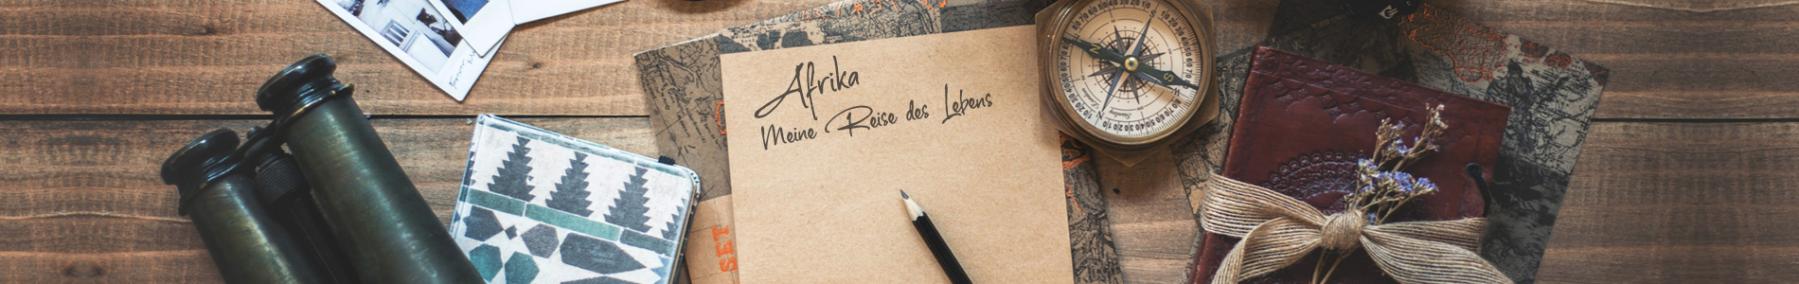 Afrika
Meine Reise des Lebens
N
S
SET